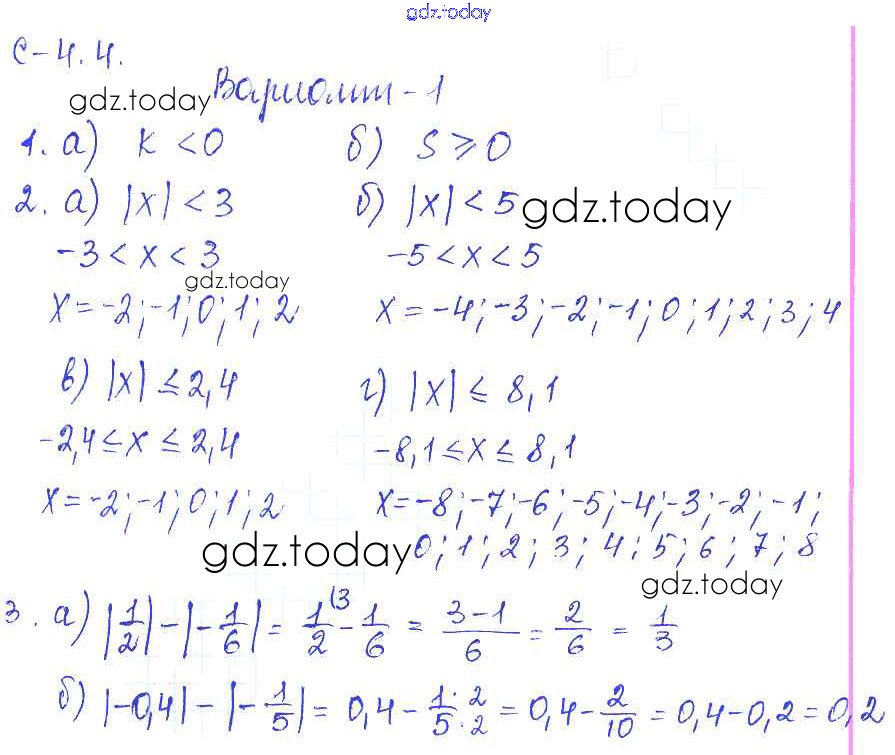 gdz.today
С-4.4.
gdz.today Вариант-1
1. а) k < 0 б) S ⩾ 0
2. а) |x| < 3 б) |x| < 5 gdz.today
-3 < x < 3 -5 < x < 5
gdz.today
x = -2; -1; 0; 1; 2 x = -4; -3; -2; -1; 0; 1; 2; 3; 4
в) |x| ≤ 2,4 г) |x| ≤ 8,1
-2,4 ≤ x ≤ 2,4 -8,1 ≤ x ≤ 8,1
x = -2; -1; 0; 1; 2 x = -8; -7; -6; -5; -4; -3; -2; -1;
gdz.today 0; 1; 2; 3; 4; 5; 6; 7; 8
gdz.today
3. а) |1/2| - |-1/6| = 1/2 (3 - 1/6 = 3-1/6 = 2/6 = 1/3
б) |-0,4| - |-1/5| = 0,4 - 1·2/5·2 = 0,4 - 2/10 = 0,4 - 0,2 = 0,2